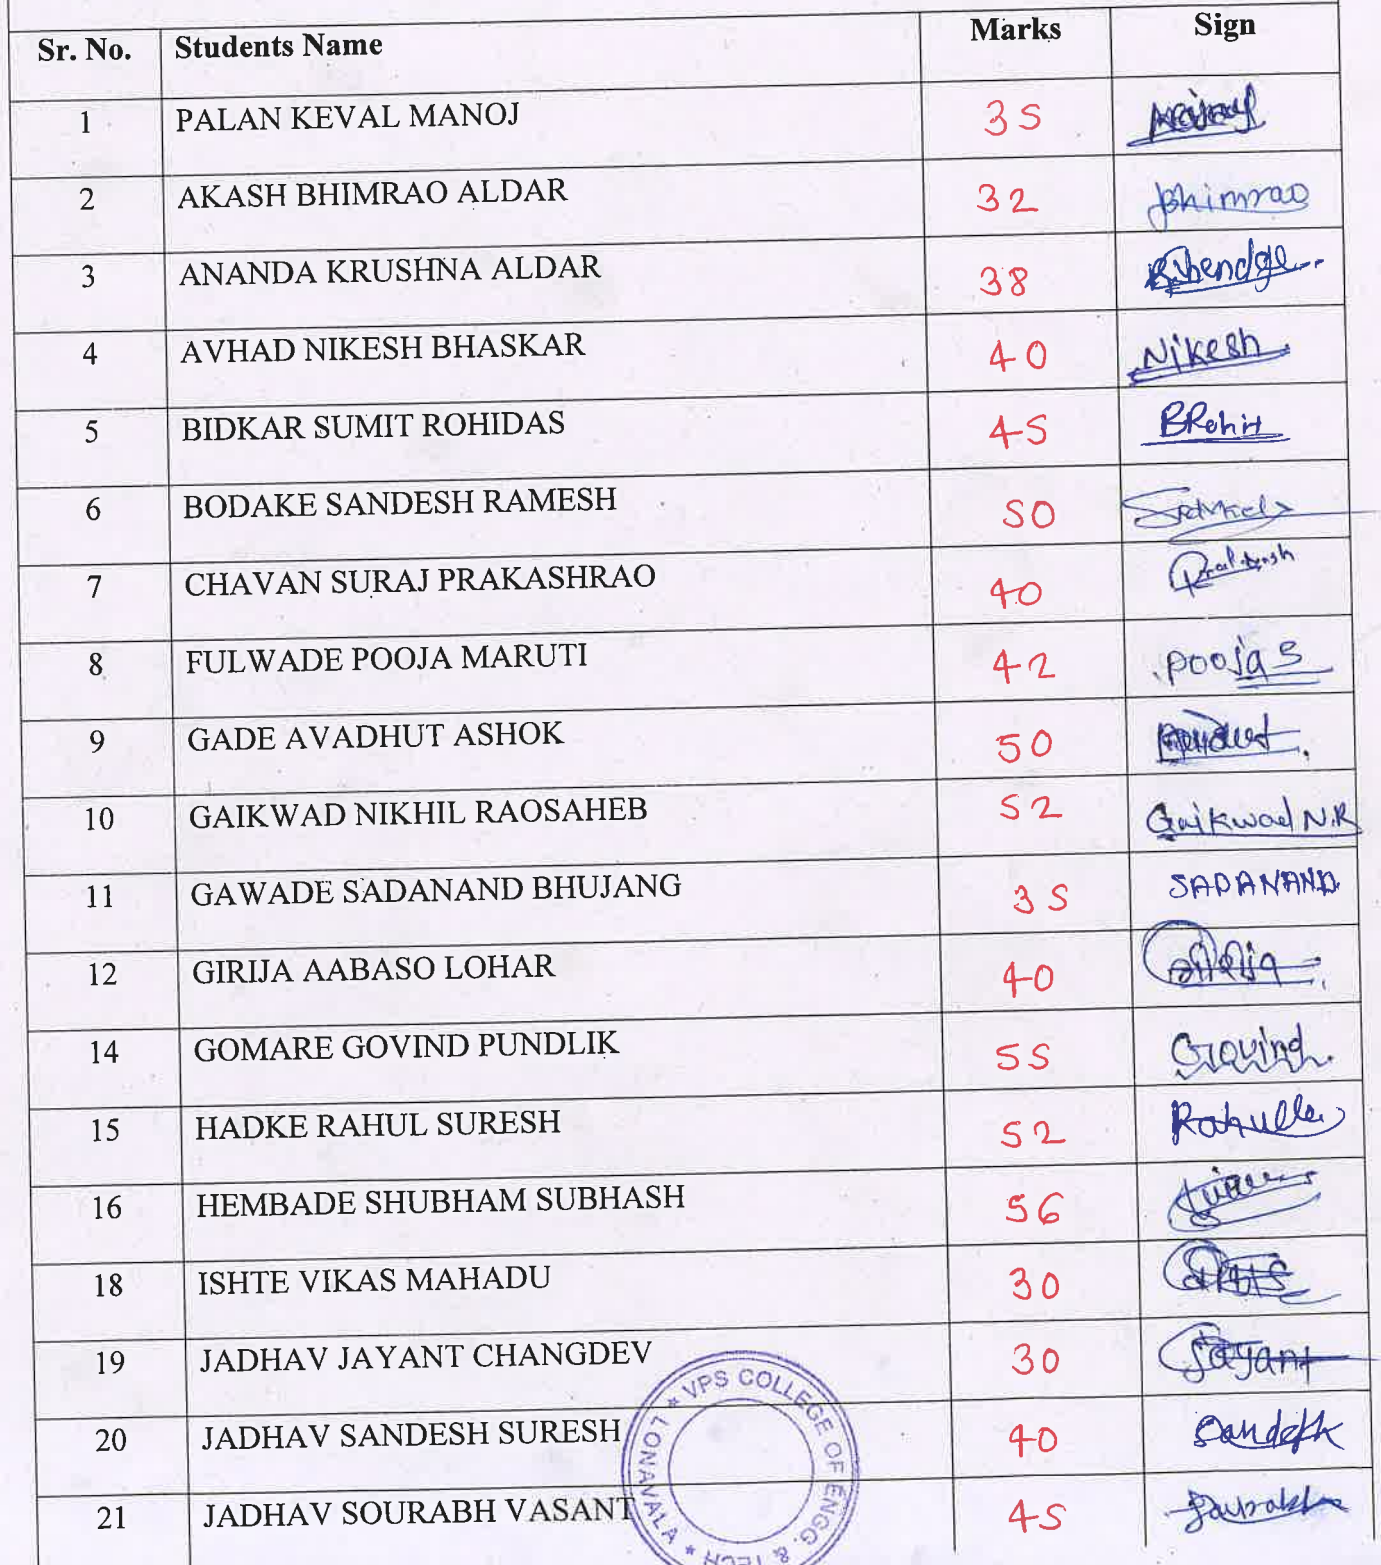 Sr. No. Students Name Marks Sign
1 PALAN KEVAL MANOJ 35
2 AKASH BHIMRAO ALDAR 32 Bhimrao
3 ANANDA KRUSHNA ALDAR 38
4 AVHAD NIKESH BHASKAR 40 Nikesh
5 BIDKAR SUMIT ROHIDAS 45 BRohit
6 BODAKE SANDESH RAMESH 50
7 CHAVAN SURAJ PRAKASHRAO 40
8 FULWADE POOJA MARUTI 42 Pooja S
9 GADE AVADHUT ASHOK 50
10 GAIKWAD NIKHIL RAOSAHEB 52 Gaikwad N.R
11 GAWADE SADANAND BHUJANG 35 SADANAND
12 GIRIJA AABASO LOHAR 40
14 GOMARE GOVIND PUNDLIK 55 Govind
15 HADKE RAHUL SURESH 52
16 HEMBADE SHUBHAM SUBHASH 56
18 ISHTE VIKAS MAHADU 30
19 JADHAV JAYANT CHANGDEV 30 Jayant
20 JADHAV SANDESH SURESH 40
21 JADHAV SOURABH VASANT 45
* VPS COLLEGE OF ENGG. & TECH * LONAVALA